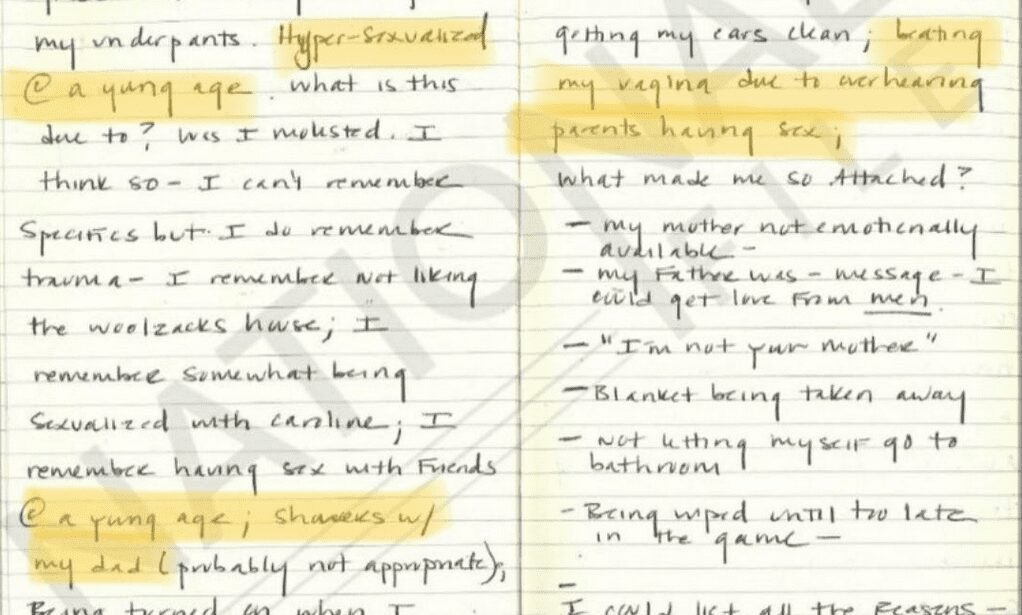 my underpants. Hyper-Sexualized
@ a yung age. what is this
due to? Was I molested. I
think so - I can't remember
Specifics but I do remember
trauma - I remember not liking
the woolzacks house; I
remember somewhat being
sexualized with caroline; I
remember having sex with Friends
@ a yung age; showers w/
my dad (probably not appropriate);
Being turned on when I
getting my ears clean; beating
my vagina due to overhearing
parents having sex;
What made me so Attached?
- my mother not emotionally
available -
- my Father was - message - I
could get love From men.
- "I'm not your mother"
- Blanket being taken away
- Not letting myself go to
bathroom
- Being wiped until too late
in the game -
-
I could list all the Reasons -
NATIONAL FILE